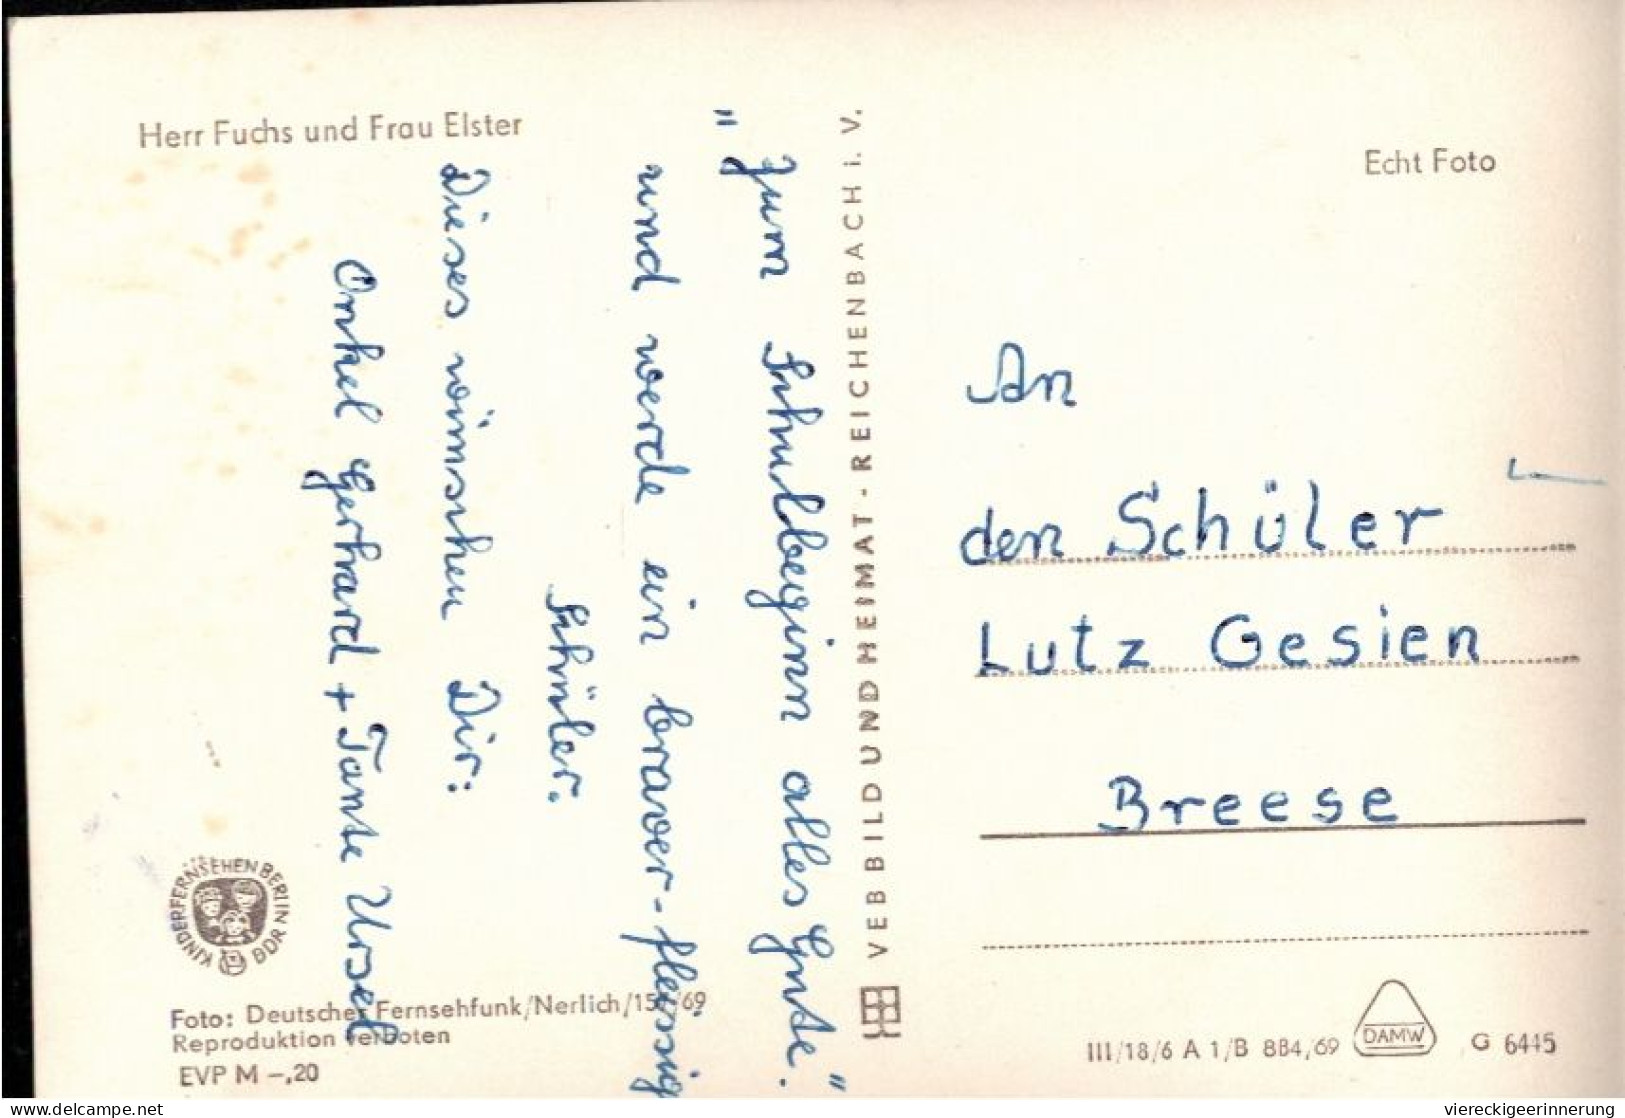 Herr Fuchs und Frau Elster
"Zum Schulbeginn alles Gute."
und werde ein braver-fleissig
Schüler.
Dieses wünschen Dir:
Onkel Gerhard + Tante Ursel
KINDERFERNSEHEN BERLIN DDR
Foto: Deutscher Fernsehfunk/Nerlich/
Reproduktion verboten
EVP M –,20
VEB BILD UND HEIMAT - REICHENBACH i. V.
Echt Foto
An
den Schüler
Lutz Gesien
Breese
III/18/6 A 1/B 884/69 DAMW G 6445
www.delcampe.net
viereckigeerinnerung